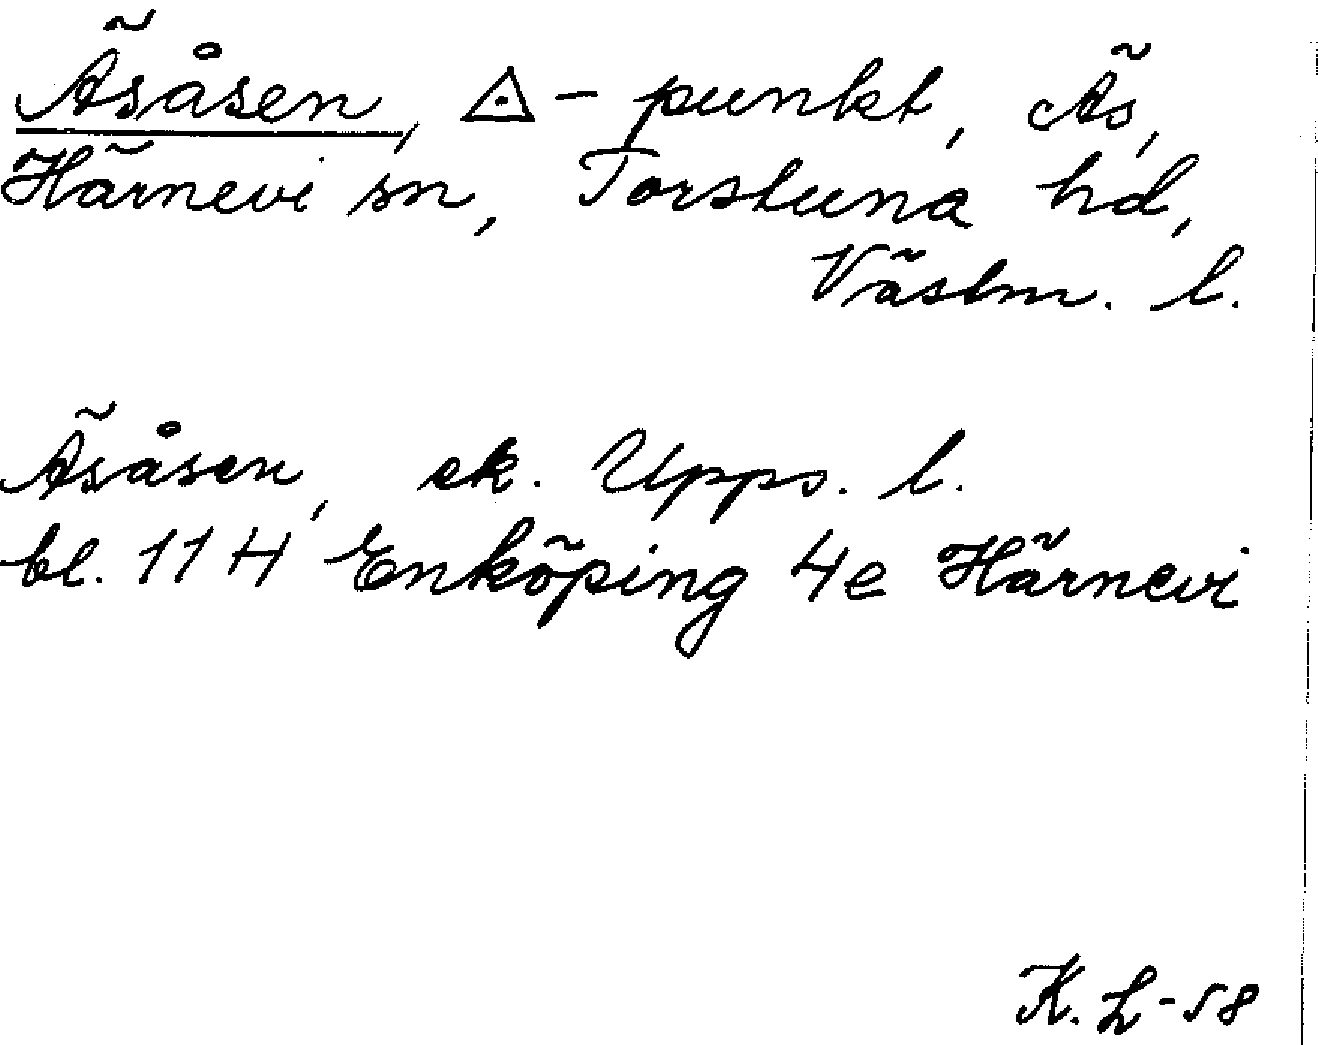 Äsåsen, ◬-punkt, Äs,
Härnevi sn, Torstuna hd,
Västm. l.
Äsåsen, ek. Upps. l.
bl. 11 H Enköping 4e Härnevi
K. L-58